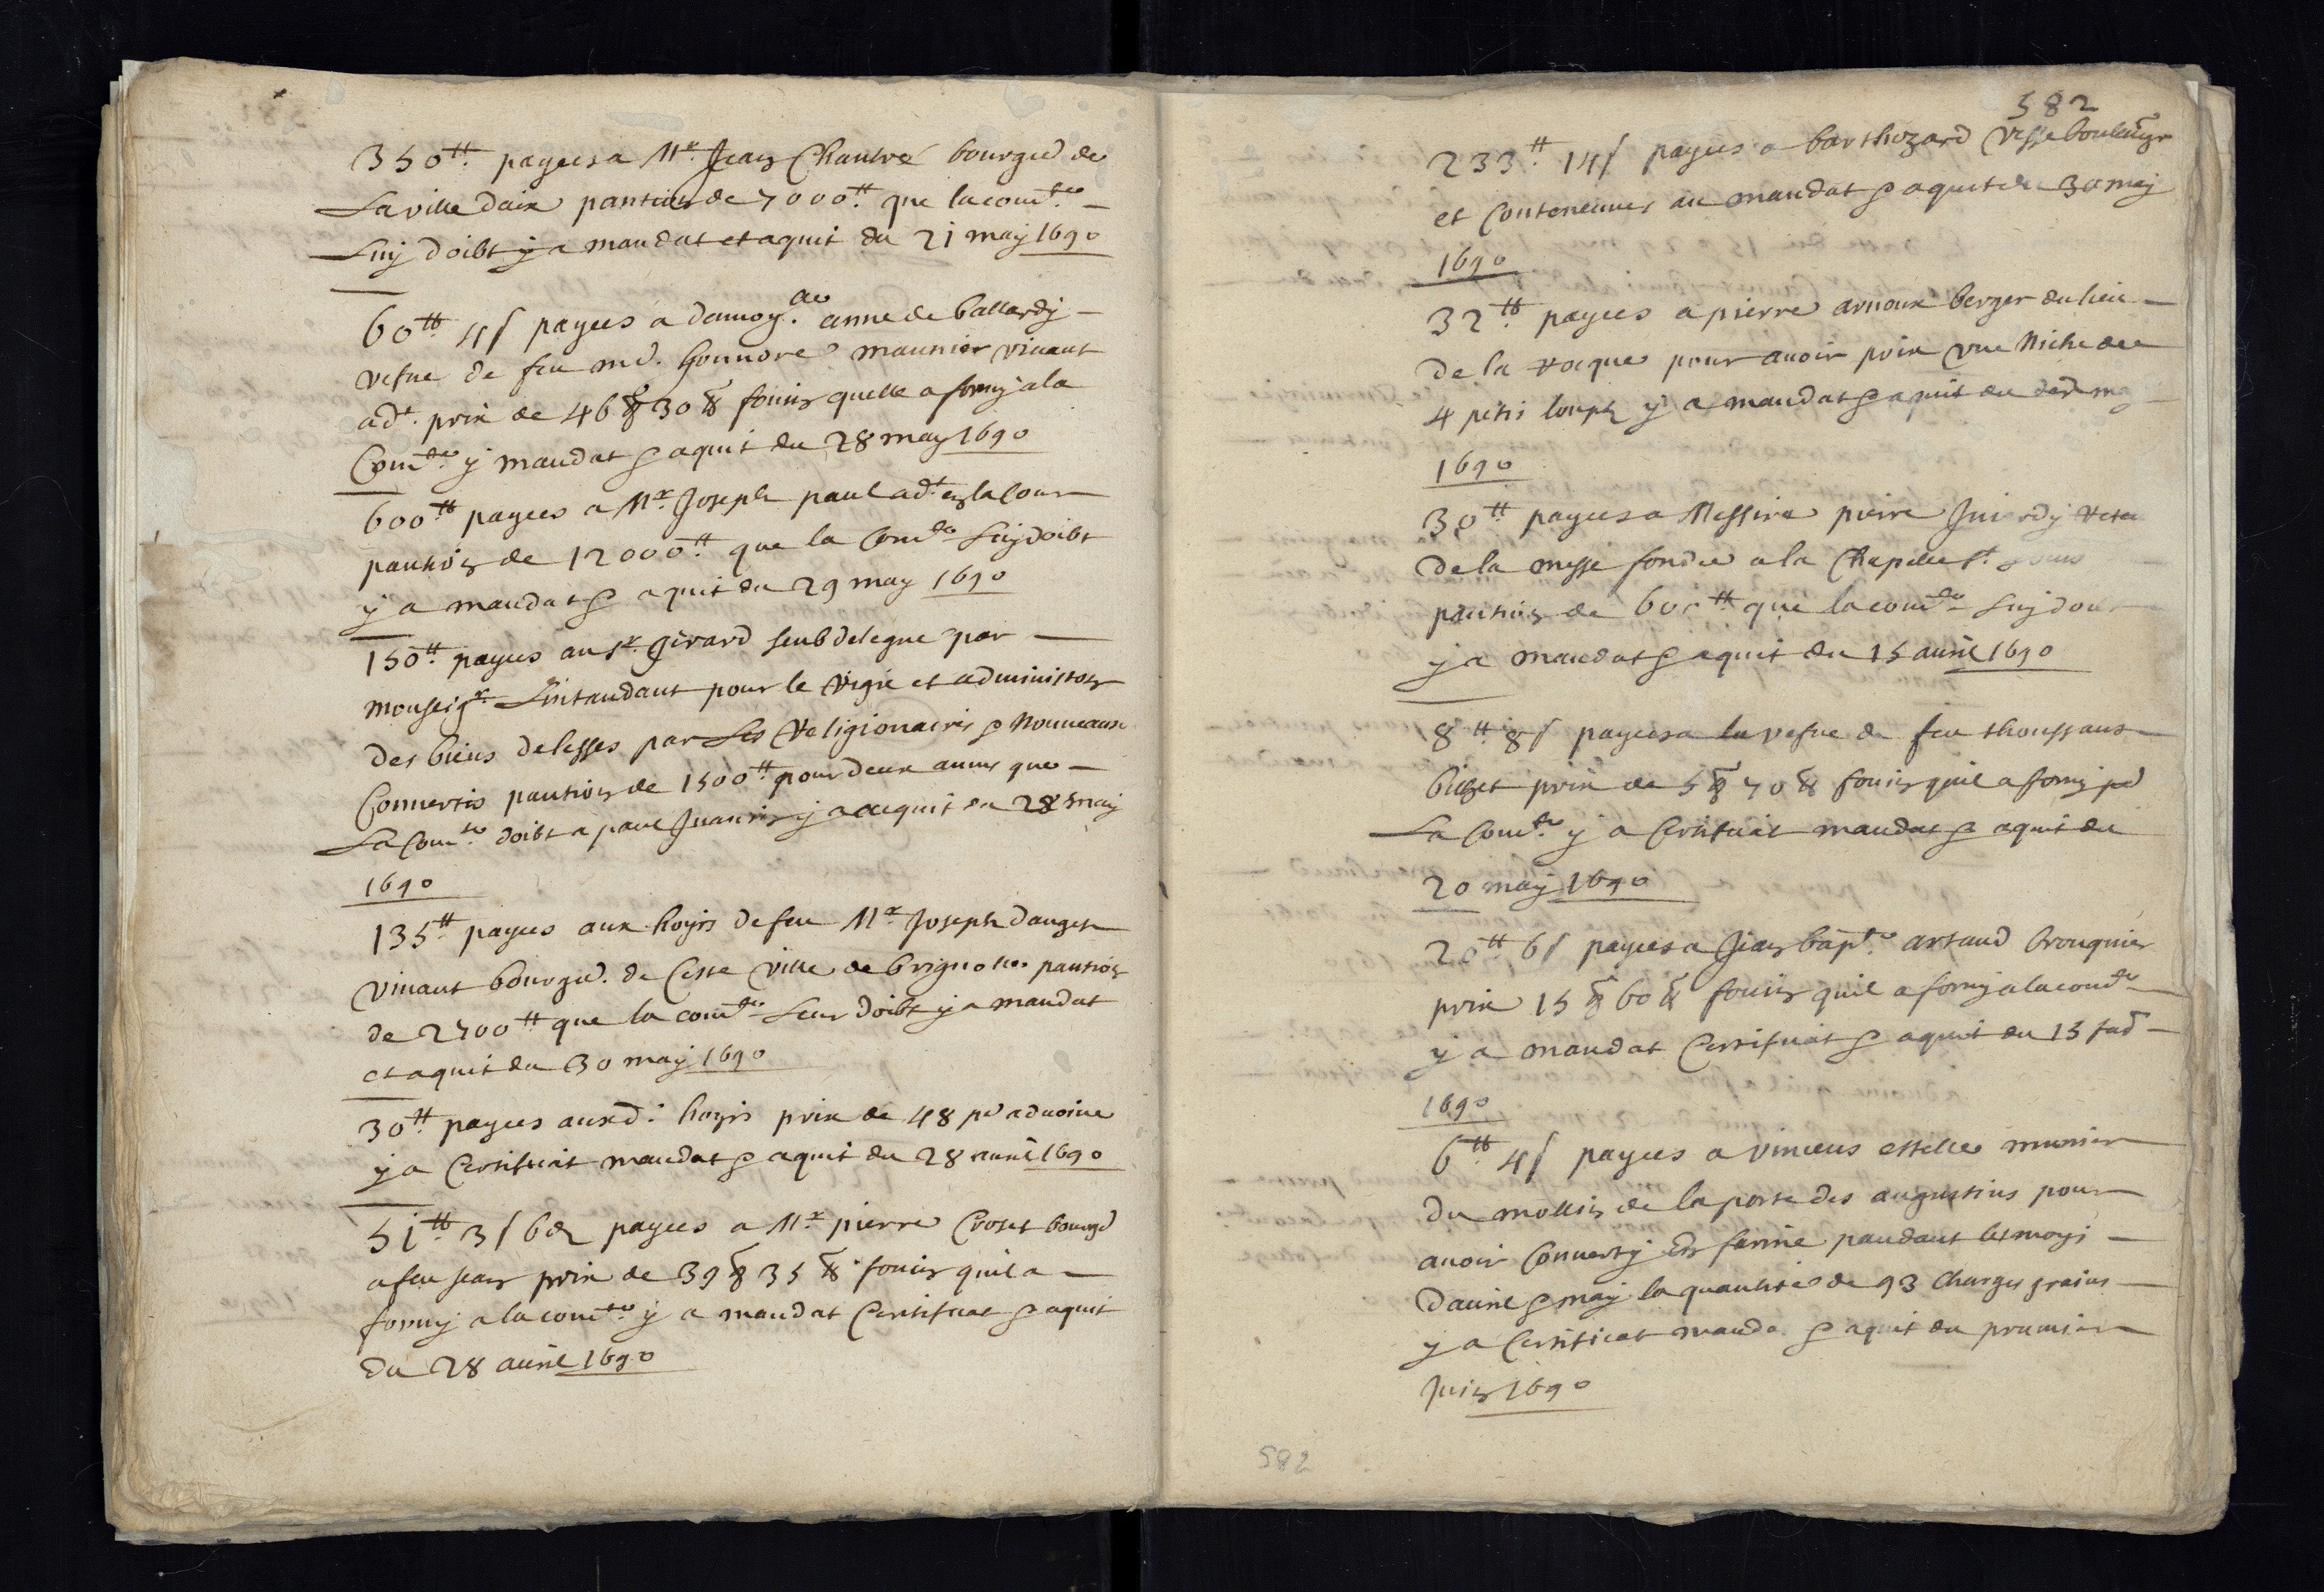 350 tt payees a Mr. Jean Chautre bourgs de
La ville daix pantion de 7000 tt que la comte
Luy doibt y a mandat et aquit du 21 may 1690
60 tt 4 s payees a damoy.le anne de ballardy
vefue de feu md. honnore maunier viuant
adt. prix de 46 q 30 lt fouin quelle a forny a la
Comte. y mandat & aquit du 28 may 1690
600 tt payees a Mr Joseph paul adt en la Cour
pantion de 12000 tt que la Comte Luy doibt
y a mandat & aquit du 29 may 1690
150 tt payees au sr girard seubdelegue par
monseigr Lintandant pour le Regie et administron
des biens delesses par Les Religionaires & Nouueaux
Conuertis pantion de 1500 tt pour deux annes que
La Comte doibt a paul y a acquit du 28 may
1690
135 tt payees aux hoyrs de feu Mr Joseph dauget
viuant bourgs. de Ceste ville de brignolles pantion
de 2700 tt que la comte Leur doibt y a mandat
et aquit du 30 may 1690
30 tt payees auxd. hoyrs prix de 48 pd aduoine
y a Certificat mandat & aquit du 28 auril 1690
51 tt 3 s 6 d payees a Mr pierre Croset bourgs
a feu Jean prix de 39 q 35 lt fouin quil a
forny a la comte y a mandat Certificat & aquit
du 28 auril 1690
582
233 tt 14 s payees a barthozard boulanger
et Conteneues au mandat & aquit du 30 may
1690
32 tt payees a pierre arnoux berger du lieu
de la Roque pour auoir prix vne Niche de
4 petis loups y a mandat & aquit du
1690
30 tt payees a Messire pierre
de la messe fondee a la Chapelle st.
pantion de 600 tt que la comte Luy doibt
y a mandat & aquit du 15 auril 1690
8 tt 8 s payees a la vefue de feu thoussans
billet prix de 5 q 70 lt fouin quil a forny pd
La Comte y a Certificat mandat & aquit du
20 may 1690
20 tt 6 s payees a Jean bapte artaud brouquier
prix 15 q 60 lt fouin quil a forny a la comte
y a mandat Certificat & aquit du 15 fud
1690
6 tt 4 s payees a vincens estelle munier
du mollin de la porte des augustins pour
auoir Conuerty En farine pandant les moys
dauril & may la quantite de 93 Charges grains
y a Certificat manda & aquit du prumier
Juin 1690
582